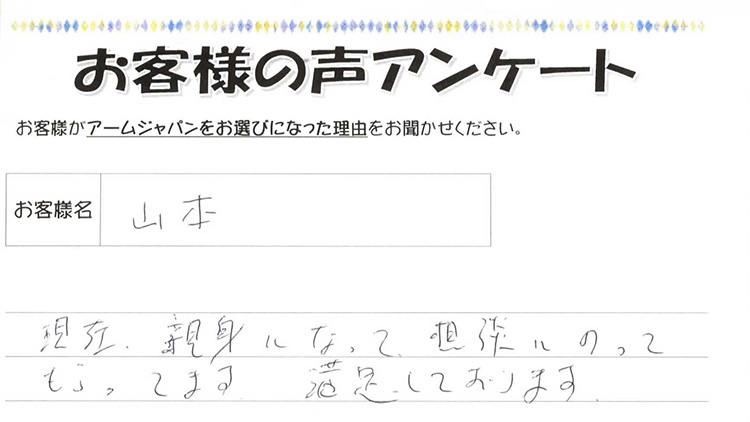 お客様の声アンケート
お客様がアームジャパンをお選びになった理由をお聞かせください。
お客様名 山本
現在、親身になって、想談にのって
もらってます 満足しております。